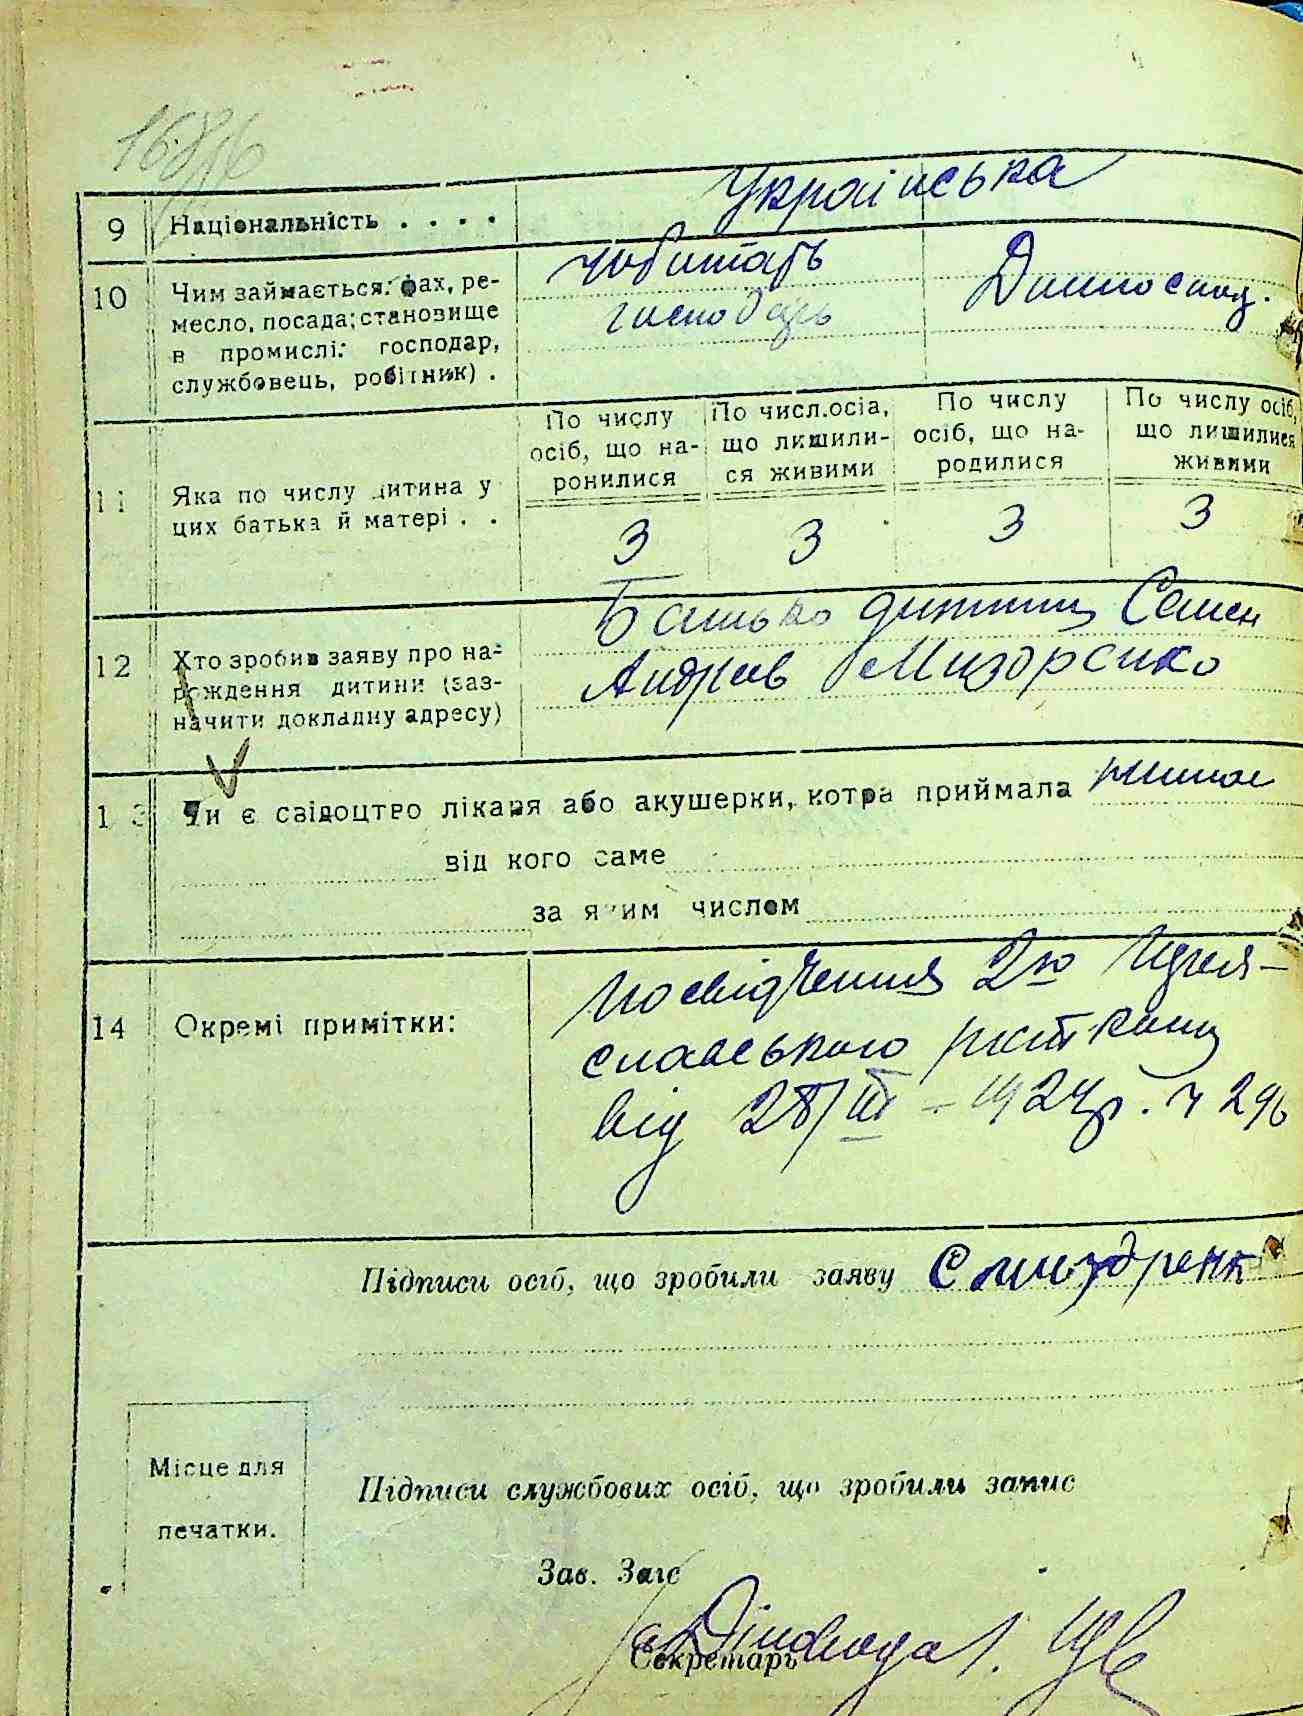 9 Національність . . . . Українська
10 Чим займається: фах, ре-
месло, посада; становище
в промислі: господар,
службовець, робітник) .
чоботарь
господарь
Домогоспод.
11 Яка по числу дитина у
цих батька й матері . .
По числу
осіб, що на-
ронилися
По числ.осіа,
що лишили-
ся живими
По числу
осіб, що на-
родилися
По числу осіб,
що лишилися
живими
3 3 3 3
12 Хто зробив заяву про на-
рождення дитини (заз-
начити докладну адресу)
Батько дитини Семен
Андріев
13 Чи є свідоцтво лікаря або акушерки, котра приймала немає
від кого саме
за яким числом
14 Окремі примітки:
Посвідчення 2го
славського
від 28/III - 1924р. ч 296
Підписи осіб, що зробили заяву
Місце для
печатки.
Підписи службових осіб, що зробили запис
Зав. Загс
Секретарь